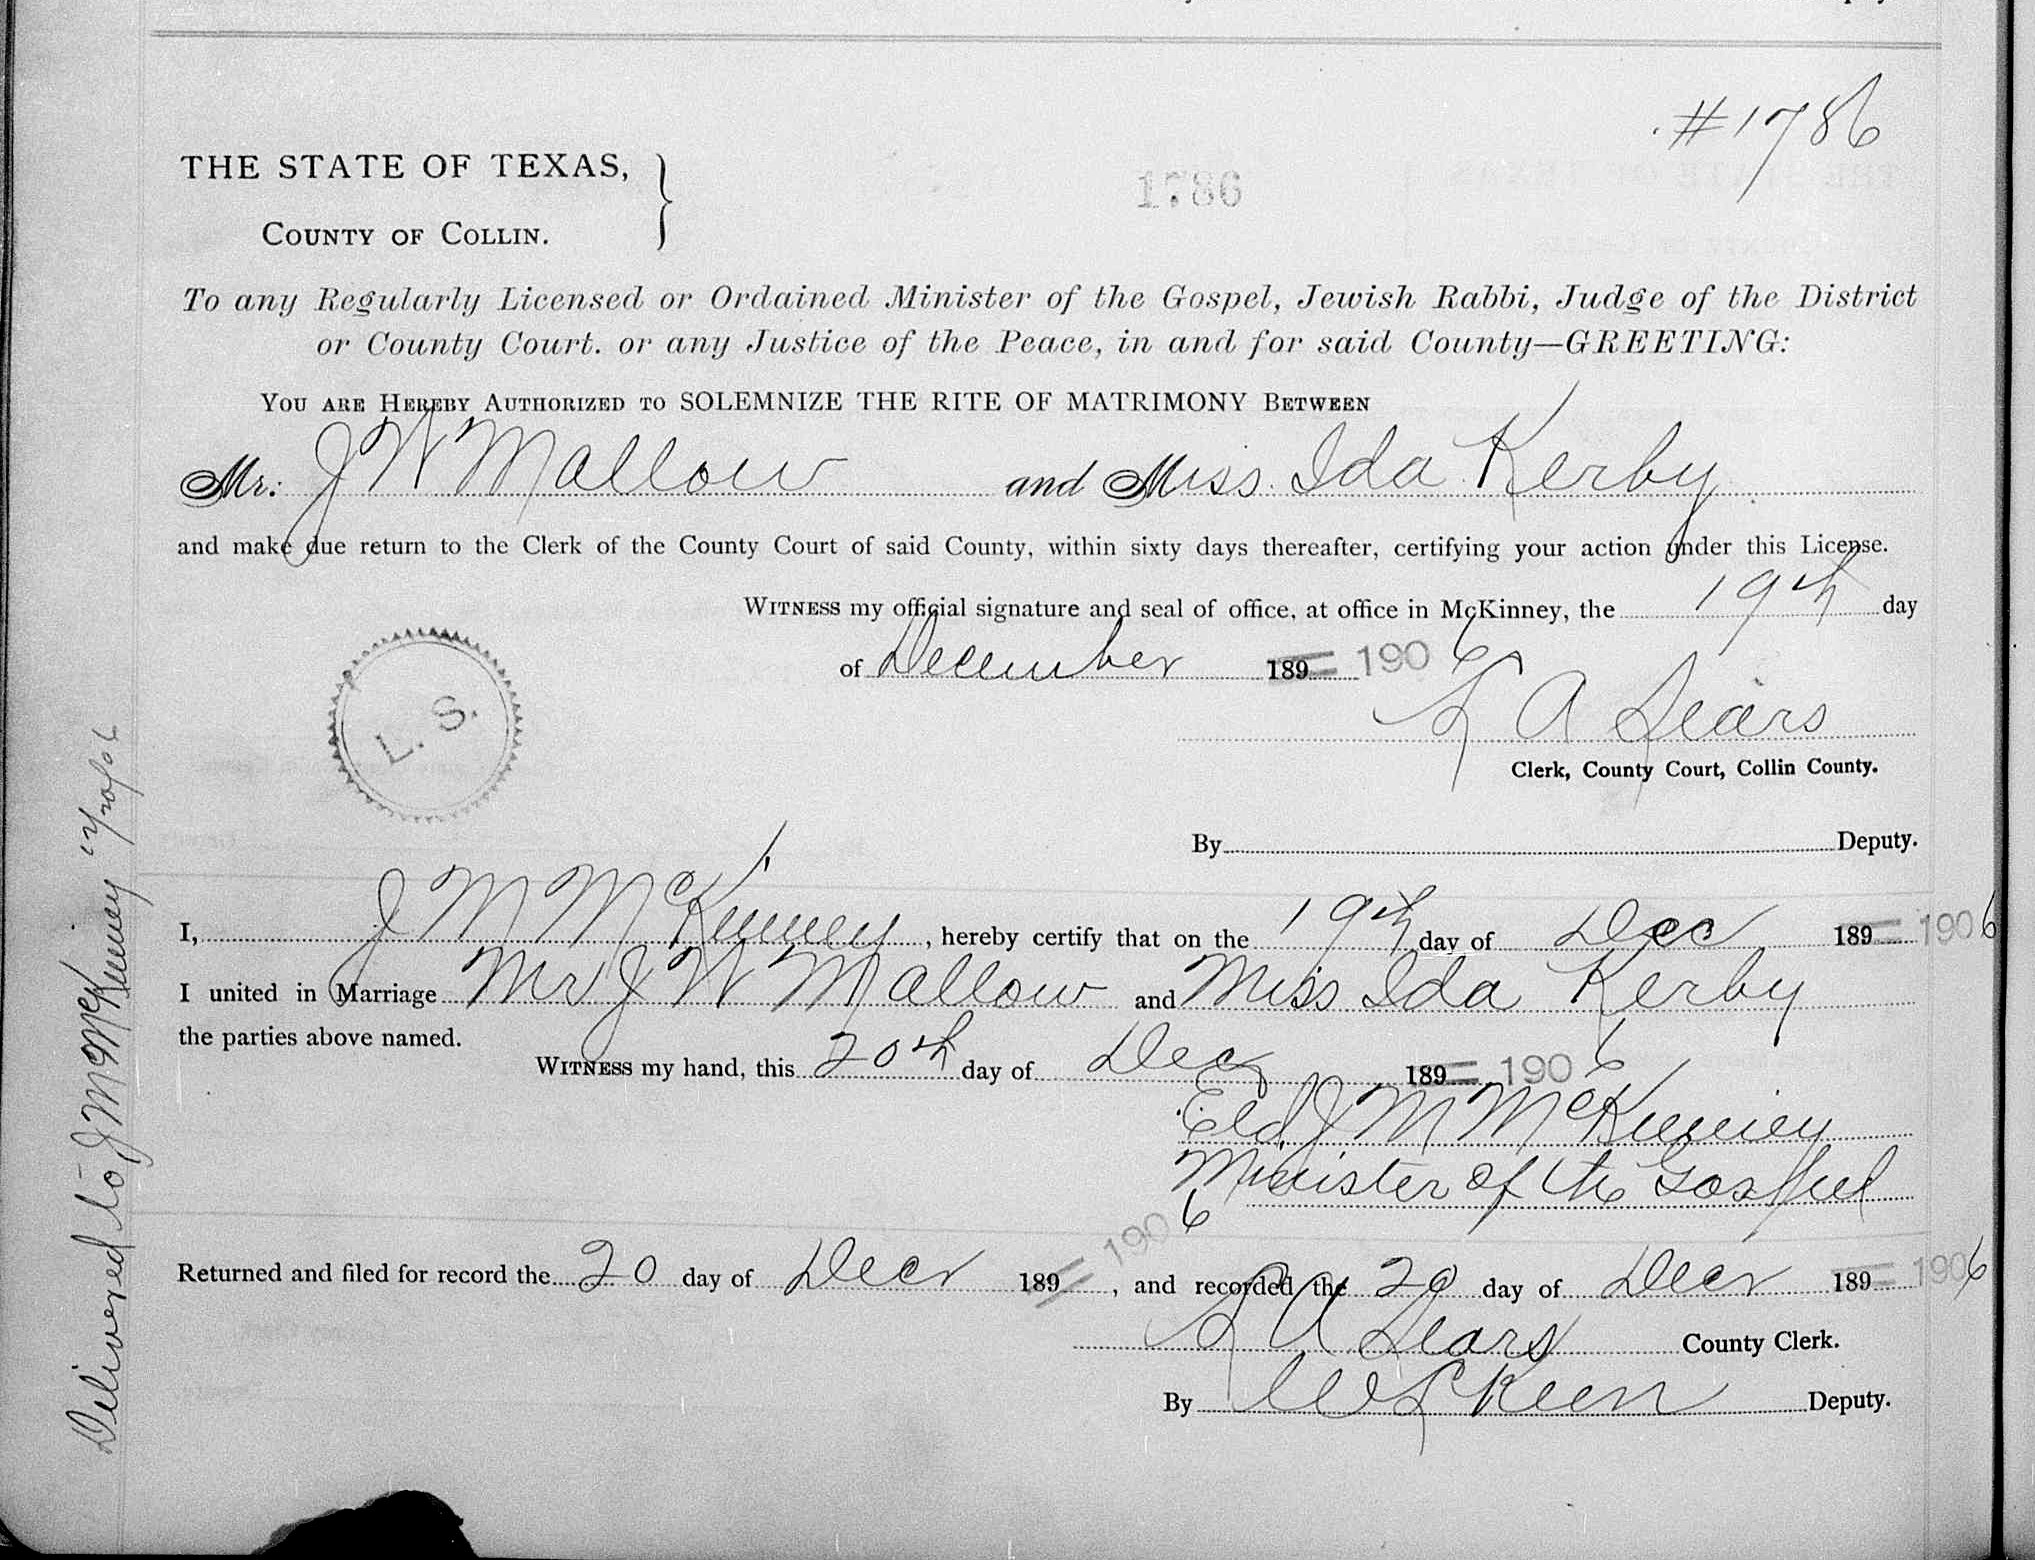 #1786
THE STATE OF TEXAS,
COUNTY OF COLLIN.
1786
To any Regularly Licensed or Ordained Minister of the Gospel, Jewish Rabbi, Judge of the District
or County Court. or any Justice of the Peace, in and for said County—GREETING:
YOU ARE HEREBY AUTHORIZED TO SOLEMNIZE THE RITE OF MATRIMONY BETWEEN
Mr. J W Mallow and Miss Ida Kerby
and make due return to the Clerk of the County Court of said County, within sixty days thereafter, certifying your action under this License.
WITNESS my official signature and seal of office, at office in McKinney, the 19th day
of December 189 1906
L. S.
F A Sears
Clerk, County Court, Collin County.
By Deputy.
I, J M McKinney, hereby certify that on the 19th day of Dec 189 1906
I united in Marriage Mr J W Mallow and Miss Ida Kerby
the parties above named.
WITNESS my hand, this 20th day of Dec 189 1906
Eld J M McKinney
Minister of the Gospel
Returned and filed for record the 20 day of Decr 189 1906, and recorded the 20 day of Decr 189 1906
F A Sears County Clerk.
By Deputy.
Delivered to J M McKinney